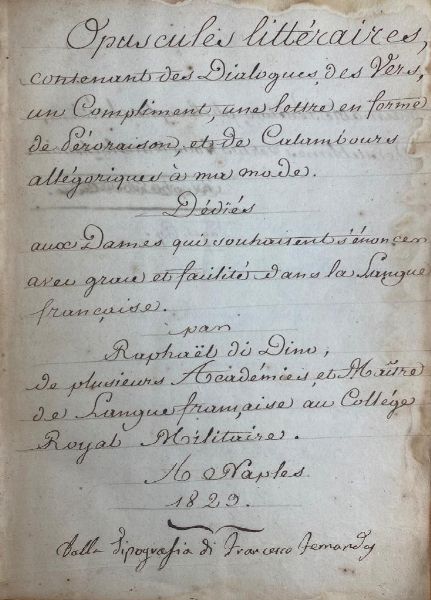 Opuscules littéraires,
contenant des Dialogues, des Vers,
un Compliment, une lettre en forme
de Péroraison, et de Calambours
allégoriques à ma mode.
Dédiés
aux Dames qui souhaitent s'énoncer
avec grace et facilité dans la Langue
française.
par
Raphaël di Dino,
de plusieurs Académies, et Maître
de Langue française au Collége
Royal Militaire.
A Naples
1823.
Dalla Tipografia di Francesco Fernandes